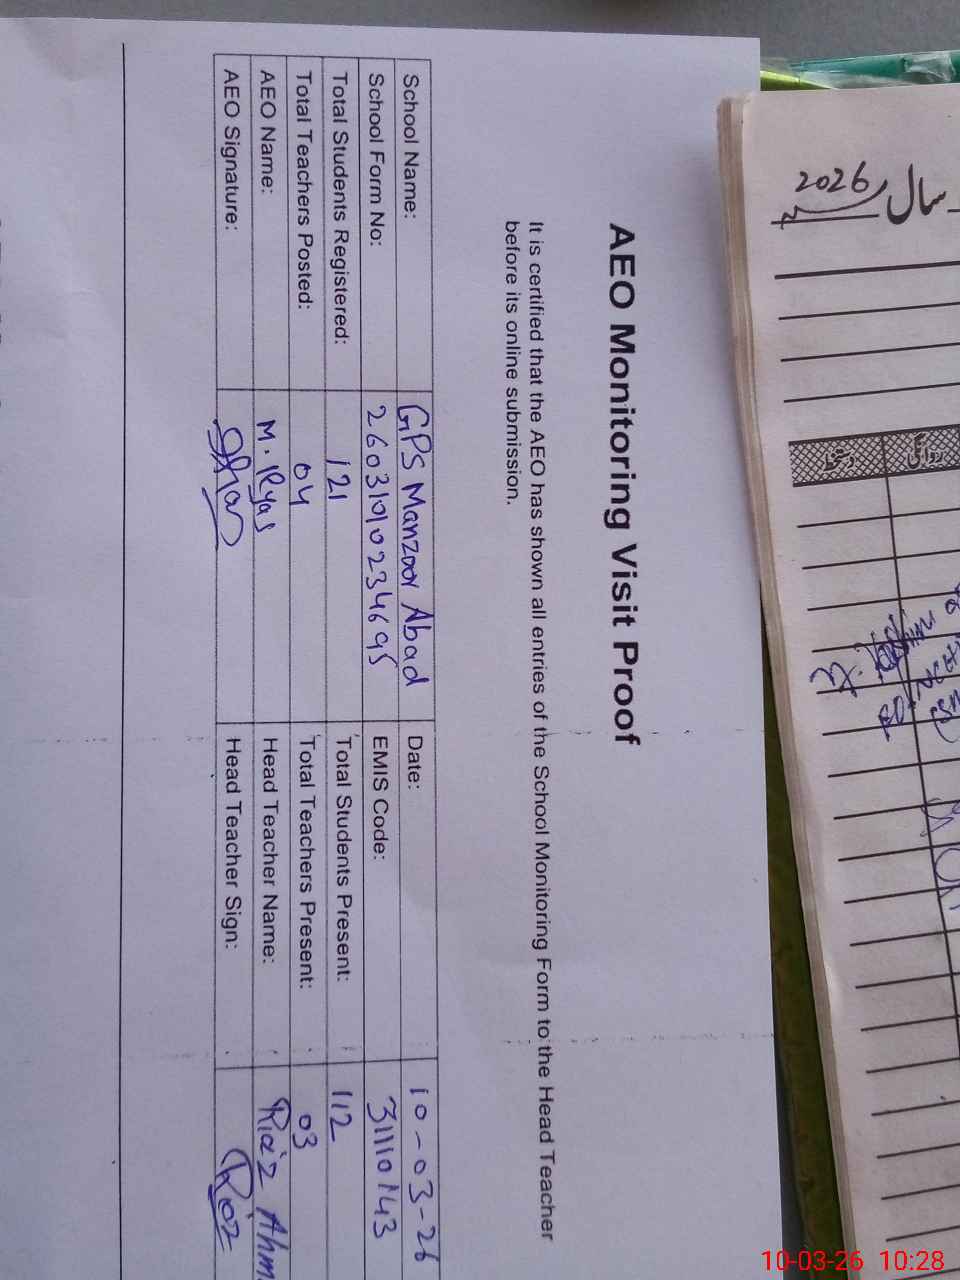 AEO Monitoring Visit Proof
It is certified that the AEO has shown all entries of the School Monitoring Form to the Head Teacher
before its online submission.
School Name: GPS Manzoor Abad Date: 10-03-26
School Form No: 26031010234695 EMIS Code: 31110143
Total Students Registered: 121 Total Students Present: 112
Total Teachers Posted: 04 Total Teachers Present: 03
AEO Name: M. Ilyas Head Teacher Name: Riaz Ahm
AEO Signature: Head Teacher Sign: Riaz
سال 2026
10-03-26 10:28